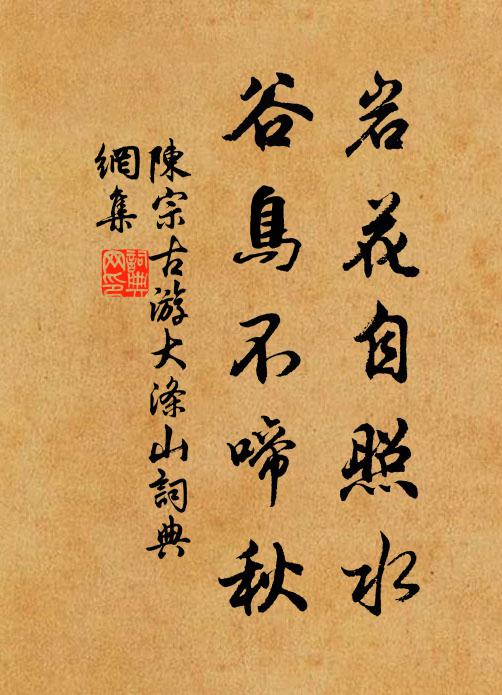 岩花自照水
谷鳥不啼秋
陳宗古游大滌山詞典
網集
詞典
网印